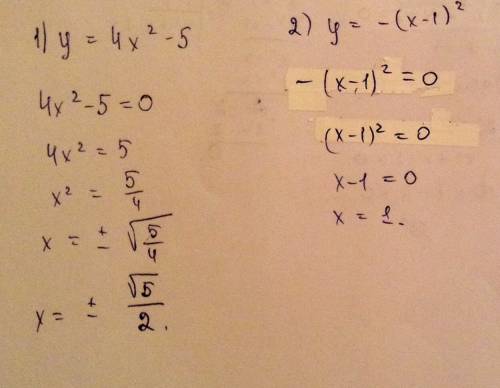 1) y = 4x² - 5
4x² - 5 = 0
4x² = 5
x² = 5/4
x = ± √(5/4)
x = ± √5/2.
2) y = -(x-1)²
-(x-1)² = 0
(x-1)² = 0
x-1 = 0
x = 1.